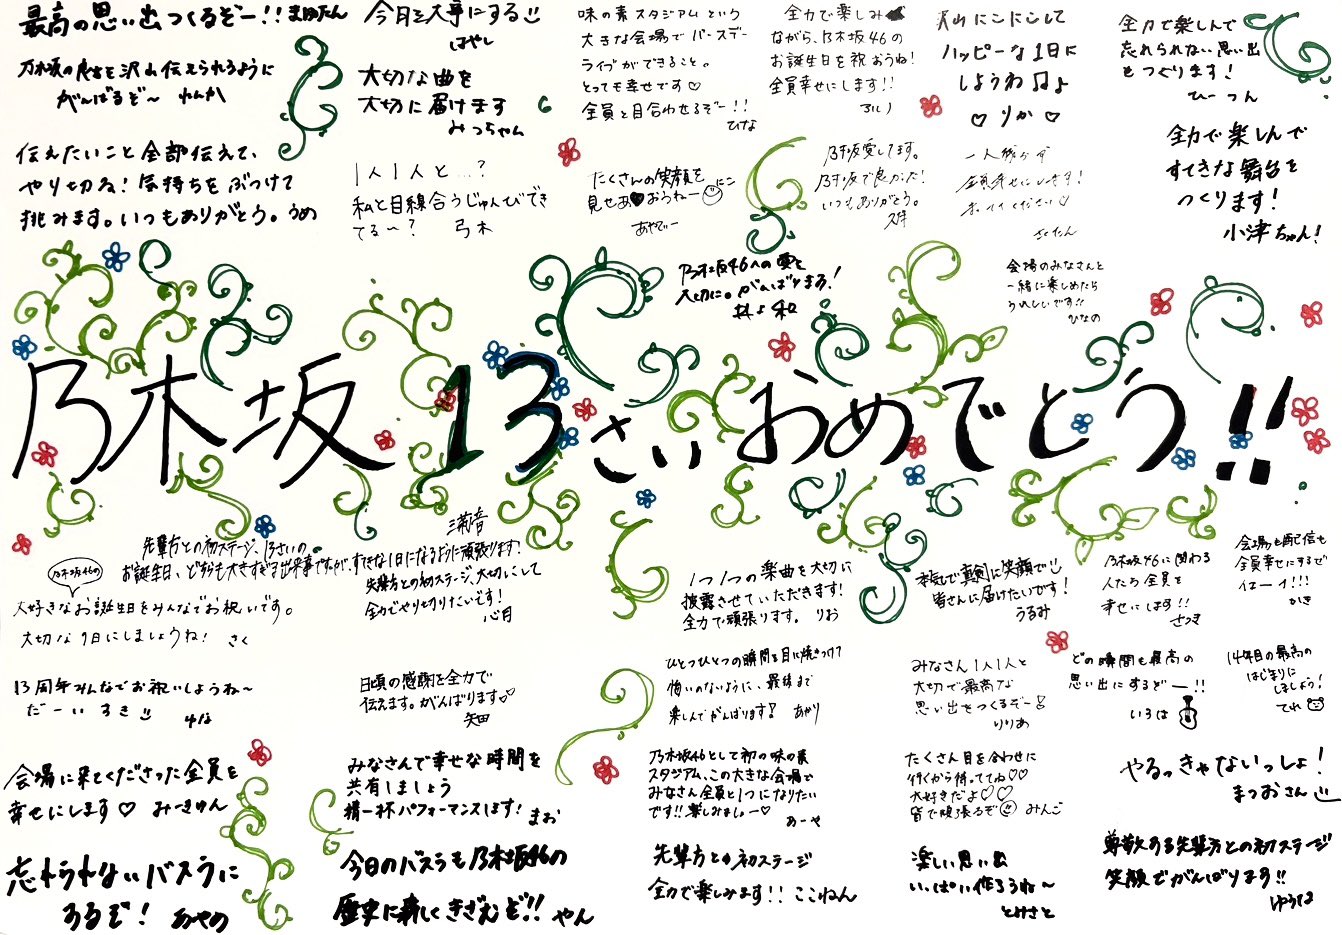 最高の思い出つくるぞー!! まゆたん
乃木坂の良さを沢山伝えられるように
がんばるぞ〜 れんか
伝えたいこと全部伝えて、
やり切るね! 気持ちをぶつけて
挑みます。いつもありがとう。うめ
今日を大事にする
はやし
大切な曲を
大切に届けます
みっちゃん
1人1人と…?
私と目線合うじゅんびでき
てる〜? 弓木
味の素スタジアムという
大きな会場でバースデー
ライブができること。
とっても幸せです♡
全員と目合わせるぞー!!
ひな
たくさんの笑顔を
見せあおうねー
にこ
あやてぃー
全力で楽しみ
ながら、乃木坂46の
お誕生日を祝おうね!
全員幸せにします!!
るい
乃木坂愛してます。
乃木坂で良かった!
いつもありがとう。
乃木坂46への愛を
大切に。がんばります!
井上和
沢山にこにこして
ハッピーな1日に
しようね♫♪
♡りか♡
一人残らず
全員幸せにします!
さくたん
会場のみなさんと
一緒に楽しめたら
うれしいです!!
ひなの
全力で楽しんで
忘れられない思い出
をつくります!
ひーつん
全力で楽しんで
すてきな舞台を
つくります!
小津ちゃん!
乃木坂13さいおめでとう!!
満音
先輩方との初ステージ、13さいの
お誕生日、どちらも大きすぎる出来事ですが、すてきな1日になるように頑張ります!
乃木坂46の
大好きなお誕生日をみんなでお祝いです。
大切な1日にしましょうね! さく
先輩方との初ステージ、大切にして
全力でやり切りたいです!
心月
1つ1つの楽曲を大切に
披露させていただきます!
全力で頑張ります。 りお
本気で真剣に笑顔で
皆さんに届けたいです!
うるみ
乃木坂46に関わる
人たち全員を
幸せにします!!
さつき
会場も配信も
全員幸せにするで
ほーい!!!
かき
13周年みんなでお祝いしようね〜
だーいすき
ゆな
日頃の感謝を全力で
伝えます。がんばります♡
矢田
ひとつひとつの瞬間を目に焼きつけて
悔いのないように、最後まで
楽しんでがんばります! あかり
みなさん1人1人と
大切で最高な
思い出をつくるぞー!
りりあ
どの瞬間も最高の
思い出にするぞー!!
いろは
14年目の最高の
はじまりに
しましょう!
てれ
会場に来てくださった全員を
幸せにします♡ みーきゅん
みなさんで幸せな時間を
共有しましょう
精一杯パフォーマンスします! まお
乃木坂46として初の味の素
スタジアム、この大きな会場で
みなさん全員と1つになりたい
です!!楽しみましょー♡
あーや
たくさん目を合わせに
行くから待っててね♡♡
大好きだよ♡♡
皆で頑張るぞ みんこ
やるっきゃないっしょ!
まつおさん
忘れられないバスラに
するぞ! あやめ
今日のバスラも乃木坂46の
歴史に新しくきざむぞ!! やん
先輩方との初ステージ
全力で楽しみます!! ここねん
楽しい思い出
いっぱい作ろうね〜
とみさと
尊敬する先輩方との初ステージ
笑顔でがんばります!!
ゆうな